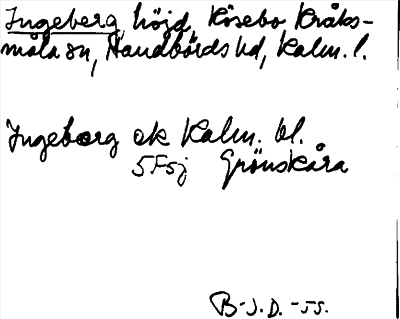 Ingeberg, höjd, Kösebo Kråks-
måla sn, Handbörds hd, Kalm. l.
Ingeberg ek Kalm. bl.
5F5j Grönskåra
B-J.D. -55.